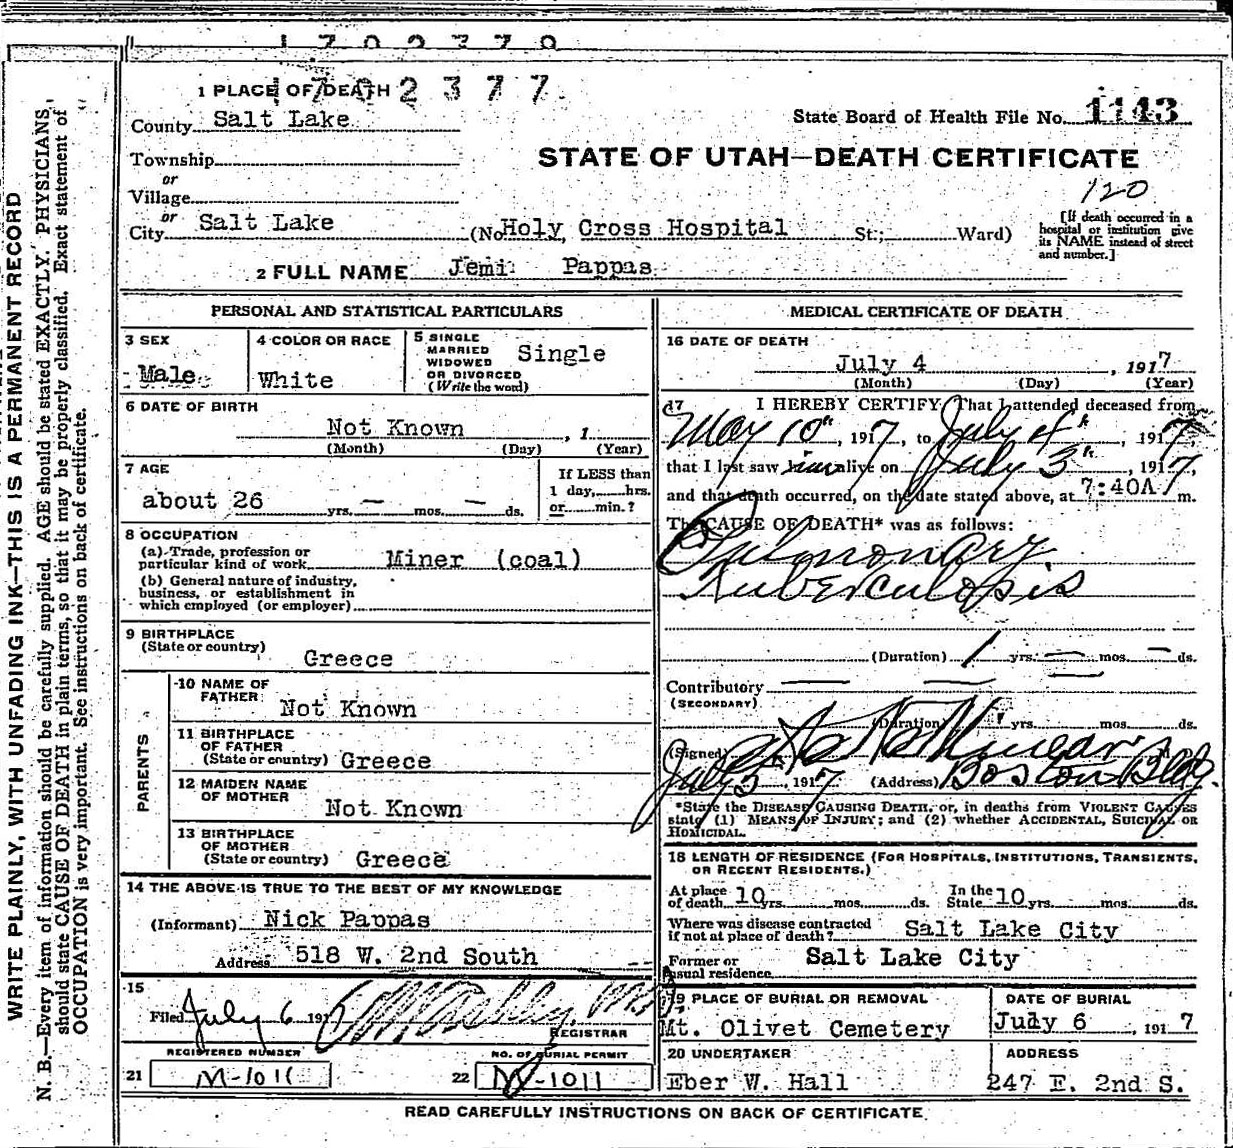 1702377
1 PLACE OF DEATH
County Salt Lake
State Board of Health File No. 1143
Township
or
Village
or
City Salt Lake
STATE OF UTAH—DEATH CERTIFICATE
120
(No. Holy Cross Hospital St.; Ward)
[If death occurred in a
hospital or institution give
its NAME instead of street
and number.]
2 FULL NAME Jemi Pappas
PERSONAL AND STATISTICAL PARTICULARS
3 SEX
Male
4 COLOR OR RACE
White
5 SINGLE
MARRIED
WIDOWED
OR DIVORCED
(Write the word)
Single
6 DATE OF BIRTH
Not Known , 1
(Month) (Day) (Year)
7 AGE
about 26 yrs. — mos. — ds.
If LESS than
1 day, hrs.
or min.?
8 OCCUPATION
(a) Trade, profession or
particular kind of work Miner (coal)
(b) General nature of industry,
business, or establishment in
which employed (or employer)
9 BIRTHPLACE
(State or country)
Greece
PARENTS
10 NAME OF
FATHER
Not Known
11 BIRTHPLACE
OF FATHER
(State or country) Greece
12 MAIDEN NAME
OF MOTHER
Not Known
13 BIRTHPLACE
OF MOTHER
(State or country) Greece
14 THE ABOVE IS TRUE TO THE BEST OF MY KNOWLEDGE
(Informant) Nick Pappas
Address 518 W. 2nd South
15
Filed July 6 191
REGISTRAR
REGISTERED NUMBER
21 M-1011
NO. OF BURIAL PERMIT
22 M-1011
MEDICAL CERTIFICATE OF DEATH
16 DATE OF DEATH
July 4 , 1917
(Month) (Day) (Year)
17 I HEREBY CERTIFY, That I attended deceased from
May 10th, 1917, to July 4th, 1917,
that I last saw him alive on July 3rd, 1917,
and that death occurred, on the date stated above, at 7:40A m.
The CAUSE OF DEATH* was as follows:
Pulmonary
Tuberculosis
(Duration) 1 yrs. — mos. — ds.
Contributory — — —
(SECONDARY)
(Duration) yrs. mos. ds.
(Signed)
July 5, 1917 (Address) Boston Bldg.
*State the DISEASE CAUSING DEATH, or, in deaths from VIOLENT CAUSES
state (1) MEANS OF INJURY; and (2) whether ACCIDENTAL, SUICIDAL OR
HOMICIDAL.
18 LENGTH OF RESIDENCE (FOR HOSPITALS, INSTITUTIONS, TRANSIENTS,
OR RECENT RESIDENTS.)
At place
of death 10 yrs. mos. ds.
In the
State 10 yrs. mos. ds.
Where was disease contracted
if not at place of death? Salt Lake City
Former or
usual residence Salt Lake City
19 PLACE OF BURIAL OR REMOVAL
Mt. Olivet Cemetery
DATE OF BURIAL
July 6 , 1917
20 UNDERTAKER
Eber W. Hall
ADDRESS
247 E. 2nd S.
READ CAREFULLY INSTRUCTIONS ON BACK OF CERTIFICATE
WRITE PLAINLY, WITH UNFADING INK—THIS IS A PERMANENT RECORD
N. B.—Every item of information should be carefully supplied. AGE should be stated EXACTLY. PHYSICIANS
should state CAUSE OF DEATH in plain terms, so that it may be properly classified. Exact statement of
OCCUPATION is very important. See instructions on back of certificate.